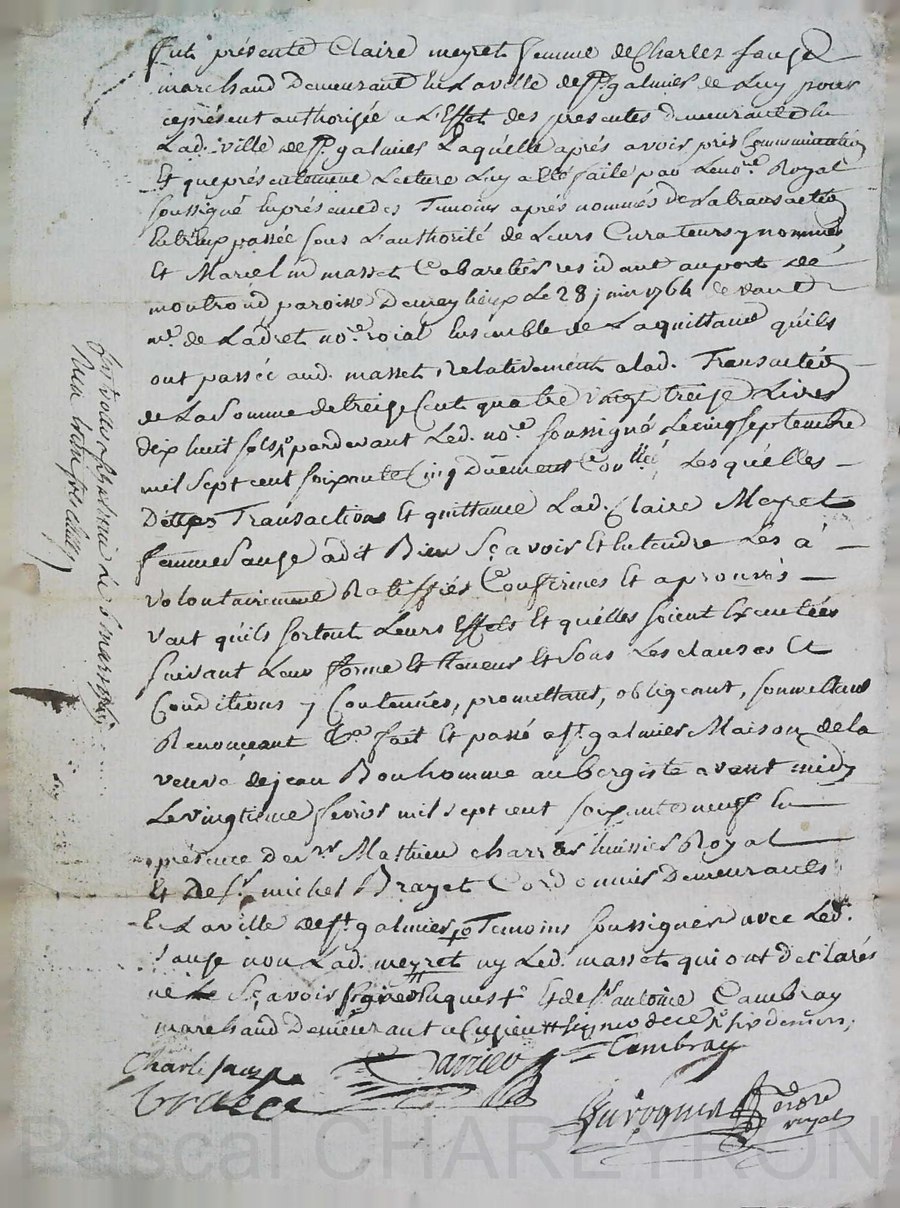 fut présente Claire meyret femme de Charles Sauze
marchand Demeurant En La ville de st. galmier de Luy pour
ce présent authorizée a L'Effet des presentes demeurante En
Lad. ville de st. galmier Laquélle aprés avoir pris Communication
Et que présentement Lecture Luy a été faite par Le nore. Royal
soussigné En présence des Temoins aprés nommés de La transaction
passée sous L'authorité de Leurs Curateurs y nommés
Et Marcelin masset Cabaretier residant au port de
montrond paroisse De meylieux Le 28 juin 1764 devant
me. de Ladret nore. roial Ensemble de La quittance qu'ils
ont passée aud. masset Relativement a lad. Transaction
de La Somme de treize Cent quatre vingt treize Livres
dix huit sols pardevant Led. nore. soussigné Le cinq septembre
mil sept cent soixante Cinq Duement Conllé Les quélles
Transactions Et quittance Lad. Claire Meyret
femme Sauze a dit Bien Sçavoir Et Entendre Les a
volontairement Ratiffiés Confirmés Et aprouvés
veut qu'ils sortent Leurs Effets Et quélles soient Executées
suivant Leur forme Et teneur Et sous Les clauses Et
Conditions y Contenues, promettant, obligeant, soumettant
Renonçant &a fait Et passé a st. galmier Maison de la
veuve de jean Bonhomme aubergiste avant midy
Le vingtieme fevrier mil sept cent soixante neuf En
présence de Mathieu charrier huissier Royal
Et De sr. michel Brayet Cordonnier Demeurants
En La ville de st. galmier Temoins soussignés avec Led.
Sauze non Lad. meyret ny Led. masset qui ont déclarés
ne Sçavoir signer Enquis Et de sr. antoine Cambray
marchand Demeurant a Cuzieu
Charle Sauze Charrier Cambray
Brayet
royal